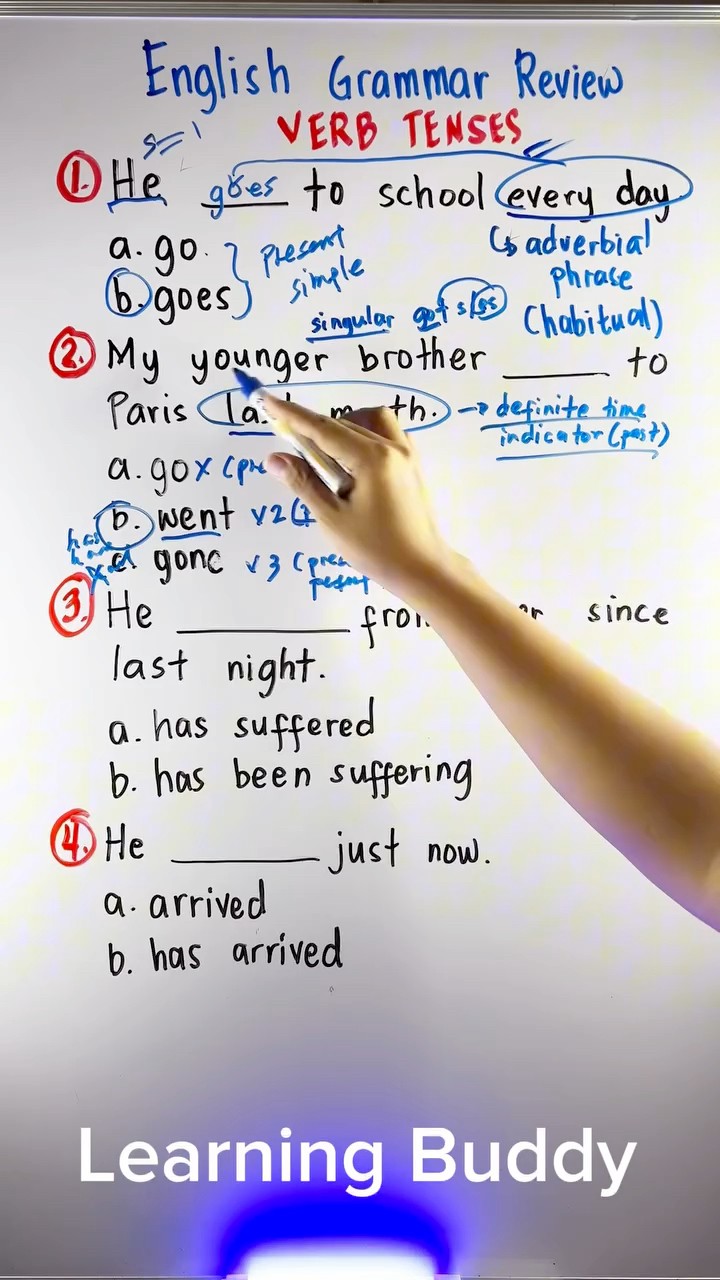 English Grammar Review
VERB TENSES
s= 1
1. He goes to school every day
a. go
b. goes
present simple
adverbial phrase
(habitual)
singular got s/es
2. My younger brother ______ to
Paris last m th. → definite time
indicator (past)
a. go x (pre
b. went v2 (
has
had
x
gone v3 (pres
3. He ______ since
last night.
a. has suffered
b. has been suffering
4. He ______ just now.
a. arrived
b. has arrived
Learning Buddy